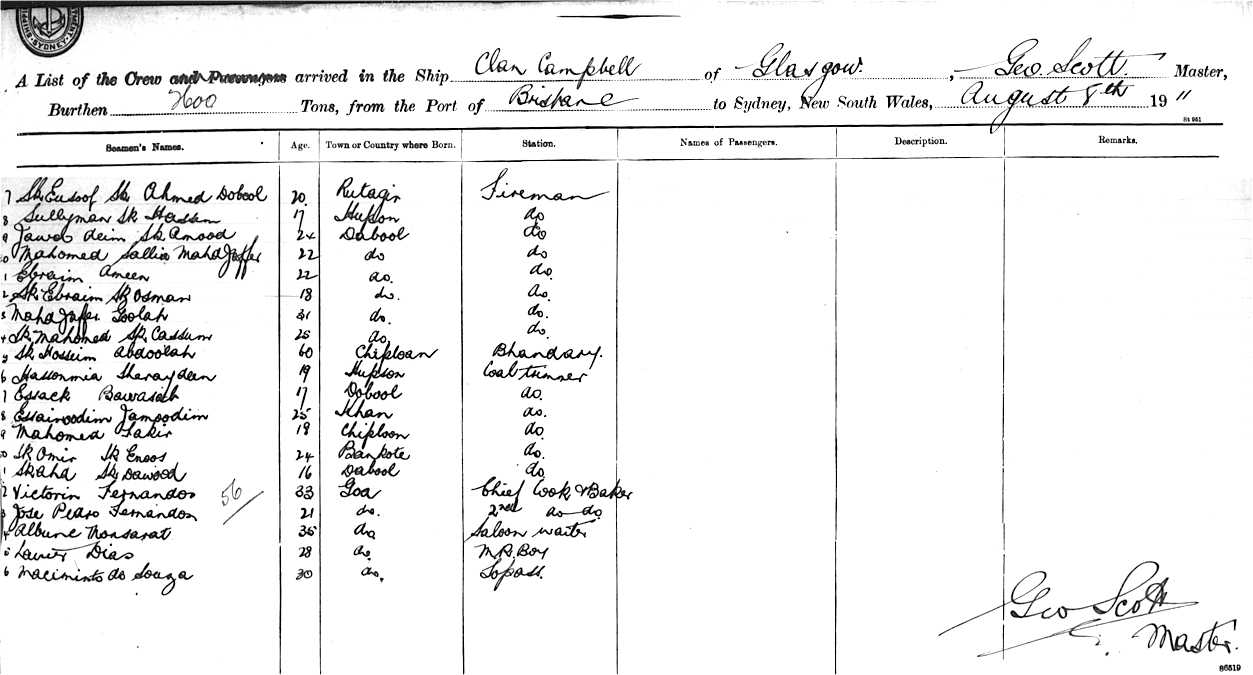 SYDNEY
A List of the Crew and Passengers arrived in the Ship Clan Campbell of Glasgow, Geo. Scott. Master,
Burthen 2600 Tons, from the Port of Brisbane to Sydney, New South Wales, August 8th 19 11
St 951
Seamen's Names. Age. Town or Country where Born. Station. Names of Passengers. Description. Remarks.
7 Sk Eusoof Sk Ahmed Dobool 20 Rutagir Fireman
8 Sullyman Sk Hassim 17 Hupson do
9 Dawood deim Sk Amood 24 Dabool do
0 Mahomed Sallia Maha Jaffer 22 do do
1 Ebraim Ameen 22 do. do.
2 Sk Ebraim Sk Osman 18 do. do.
3 Maha Jaffer Goolah 31 do. do.
4 Sk Mahomed Sk Cassum 25 do. do.
5 Sk Hosseim Abdoolah 60 Chiploan Bhandary.
6 Hassonmia Sheraydeen 19 Hupson Coal trimmer
7 Essack Bawasaib 17 Dobool do.
8 Essainoodim Jampodim 25 Khan do.
9 Mahomed Fakir 18 Chiploon do.
0 Sk Omir Sk Enoos 24 Bankote do.
1 Skaha Sk Dawood 16 Dabool do.
2 Victorin Fernandos 56 33 Goa Chief Cook & Baker
3 Jose Pedro Fernandos 21 do. 2nd do do
4 Albune Monsarat 35 do Saloon waiter
5 Dias 28 do. M.R. Boy
6 Maciminto do Souza 30 do. Topass.
Geo Scott
Master.
86519